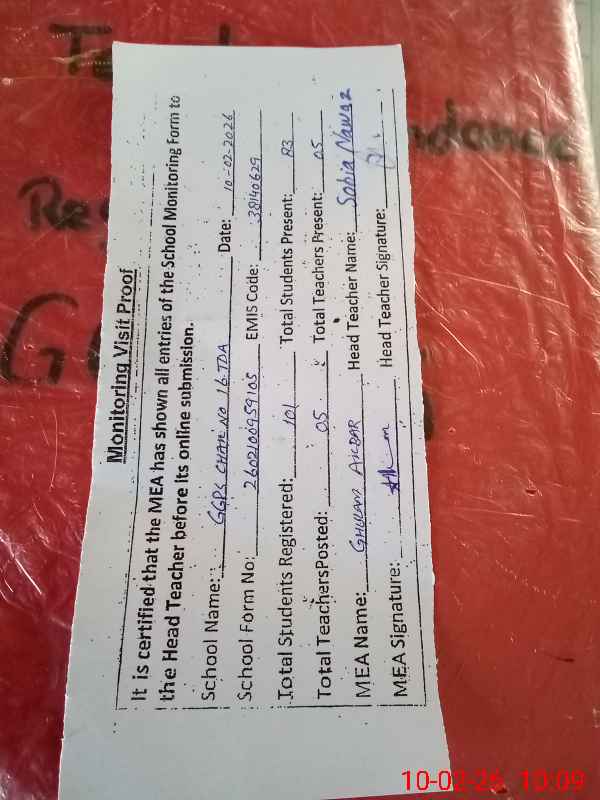 Monitoring Visit Proof
It is certified that the MEA has shown all entries of the School Monitoring Form to
the Head Teacher before its online submission.
School Name: GGPS CHAK NO 16 TDA Date: 10-02-2026
School Form No: 2602100959105 EMIS Code: 38140629
Total Students Registered: 101 Total Students Present: 83
Total TeachersPosted: 05 Total Teachers Present: 05
MEA Name: GHULAM AKBAR Head Teacher Name: Sobia Nawaz
MEA Signature: Head Teacher Signature:
10-02-26 10:09